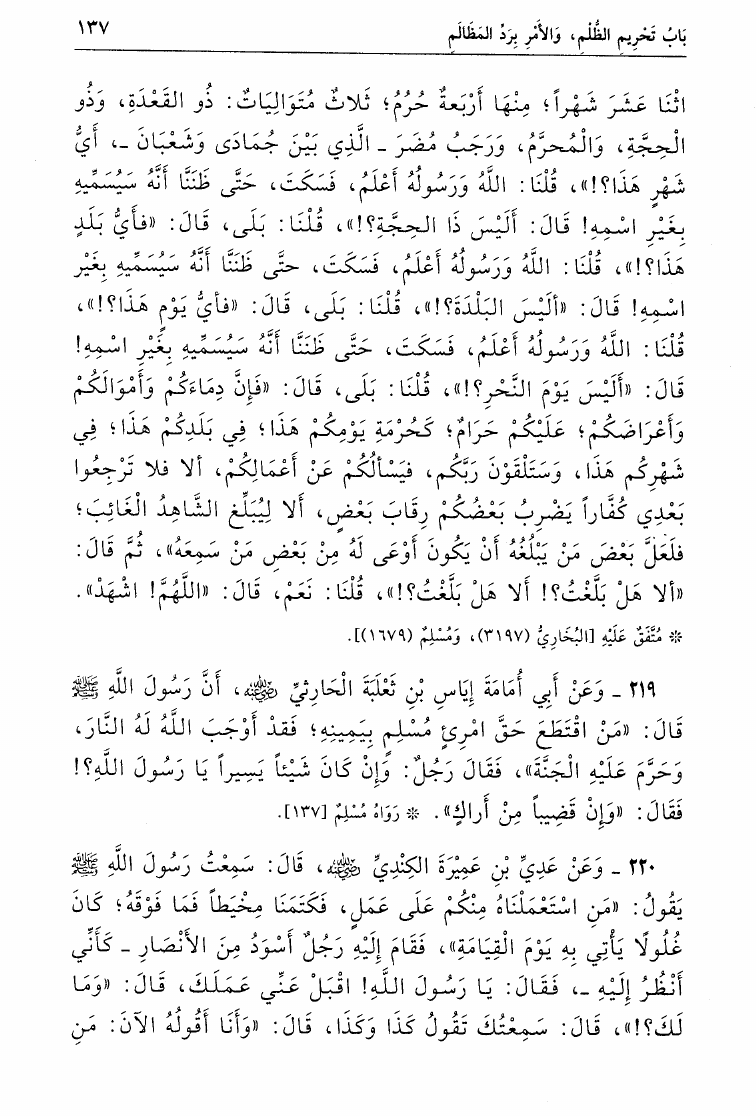 بَابُ تَحْرِيمِ الظُّلْمِ، وَالأَمْرِ بِرَدِّ المَظَالَمِ ١٣٧
اثْنَا عَشَرَ شَهْراً؛ مِنْهَا أَرْبَعةٌ حُرُمٌ؛ ثَلاثٌ مُتَوَالِيَاتٌ: ذُو القَعْدَةِ، وَذُو
الْحِجَّةِ، وَالْمُحرَّمُ، وَرَجَبُ مُضَرَ ـ الَّذِي بَيْنَ جُمَادَى وَشَعْبَانَ ـ، أَيُّ
شَهْرٍ هَذَا؟!»، قُلْنَا: اللَّهُ وَرَسُولُهُ أَعْلَمُ، فَسَكَتَ، حَتَّى ظَنَنَّا أَنَّهُ سَيُسَمِّيهِ
بِغَيْرِ اسْمِهِ! قَالَ: أَلَيْسَ ذَا الحِجَّةِ؟!»، قُلْنَا: بَلَى، قَالَ: «فأيُّ بَلَدٍ
هَذَا؟!»، قُلْنَا: اللَّهُ وَرَسُولُهُ أَعْلَمُ، فَسَكَتَ، حتَّى ظَنَنَّا أَنَّهُ سَيُسَمِّيهِ بِغَيْرِ
اسْمِهِ! قَالَ: «أَلَيْسَ البَلْدَةَ؟!»، قُلْنَا: بَلَى، قَالَ: «فأيُّ يَوْمٍ هَذَا؟!»،
قُلْنَا: اللَّهُ وَرَسُولُهُ أَعْلَمُ، فَسَكَتَ، حَتَّى ظَنَنَّا أَنَّهُ سَيُسَمِّيهِ بِغَيْرِ اسْمِهِ!
قَالَ: «أَلَيْسَ يَوْمَ النَّحْرِ؟!»، قُلْنَا: بَلَى، قَالَ: «فَإِنَّ دِمَاءَكُمْ وَأَمْوَالَكُمْ
وَأَعْرَاضَكُمْ؛ عَلَيْكُمْ حَرَامٌ؛ كَحُرْمَةِ يَوْمِكُمْ هَذَا؛ فِي بَلَدِكُمْ هَذَا؛ فِي
شَهْرِكُم هَذَا، وَسَتَلْقَوْنَ رَبَّكُم، فَيَسْأَلُكُمْ عَنْ أَعْمَالِكُمْ، ألا فلا تَرْجِعُوا
بَعْدِي كُفَّاراً يَضْرِبُ بَعْضُكُمْ رِقَابَ بَعْضٍ، أَلا لِيُبَلِّغِ الشَّاهِدُ الْغَائِبَ؛
فلَعَلَّ بَعْضَ مَنْ يَبْلُغُهُ أَنْ يَكُونَ أَوْعَى لَهُ مِنْ بَعْضِ مَنْ سَمِعَهُ»، ثُمَّ قَالَ:
«ألا هَلْ بَلَّغْتُ؟! أَلا هَلْ بَلَّغْتُ؟!»، قُلْنَا: نَعَمْ، قَالَ: «اللَّهُمَّ! اشْهَدْ».
※ مُتَّفَقٌ عَلَيْهِ [البُخَارِيُّ (٣١٩٧)، وَمُسْلِمٌ (١٦٧٩)].
٢١٩ ـ وَعَنْ أَبِي أُمَامَةَ إِيَاسِ بْنِ ثَعْلَبَةَ الْحَارِثِيِّ رضي الله عنه، أَنَّ رَسُولَ اللَّهِ ﷺ
قَالَ: «مَنْ اقْتَطَعَ حَقَّ امْرِئٍ مُسْلِمٍ بِيَمِينِهِ؛ فَقدْ أَوْجَبَ اللَّهُ لَهُ النَّارَ،
وَحَرَّمَ عَلَيْهِ الْجَنَّةَ»، فَقَالَ رَجُلٌ: وَإِنْ كَانَ شَيْئاً يَسِيراً يَا رَسُولَ اللَّهِ؟!
فَقَالَ: «وَإِنْ قَضِيباً مِنْ أَراكٍ». ※ رَوَاهُ مُسْلِمٌ [١٣٧].
٢٢٠ ـ وَعَنْ عَدِيِّ بْنِ عَمِيْرَةَ الكِنْدِيِّ رضي الله عنه، قَالَ: سَمِعْتُ رَسُولَ اللَّهِ ﷺ
يَقُولُ: «مَنِ اسْتَعْمَلْنَاهُ مِنْكُمْ عَلَى عَمَلٍ، فَكَتَمَنَا مِخْيَطاً فَمَا فَوْقَهُ؛ كَانَ
غُلُولًا يَأْتِي بِهِ يَوْمَ الْقِيَامَةِ»، فَقَامَ إِلَيْهِ رَجُلٌ أَسْوَدُ مِنَ الأَنْصَارِ ـ كَأَنِّي
أَنْظُرُ إِلَيْهِ ـ، فَقَالَ: يَا رَسُولَ اللَّهِ! اقْبَلْ عَنِّي عَمَلَكَ، قَالَ: «وَمَا
لَكَ؟!»، قَالَ: سَمِعْتُكَ تَقُولُ كَذَا وَكَذَا، قَالَ: «وَأَنَا أَقُولُهُ الآنَ: مَنِ